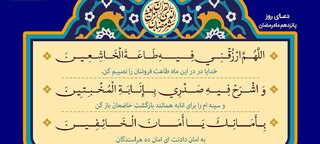 دعای روز
پانزدهم ماه رمضان
اللَّهُمَّ ارْزُقْنِي فِيهِ طَاعَةَ الْخَاشِعِينَ
خدایا در این ماه طاعت فروتنان را نصیبم کن
وَ اشْرَحْ فِيهِ صَدْرِي بِإِنَابَةِ الْمُخْبِتِينَ
و سینه ام را برای انابه همانند بازگشت خاضعان باز کن
بِأَمَانِكَ يَا أَمَانَ الْخَائِفِينَ
به امان دادنت ای امان ده هراسندگان.